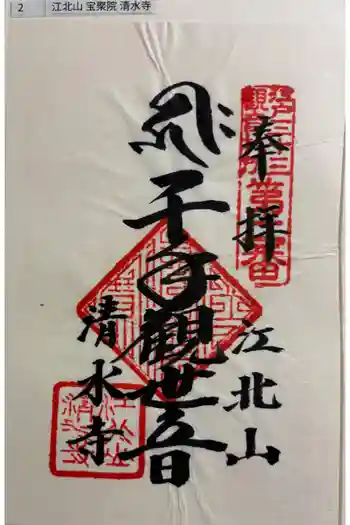 2 江北山 宝聚院 清水寺
奉拝
千手觀世音
江北山
清水寺